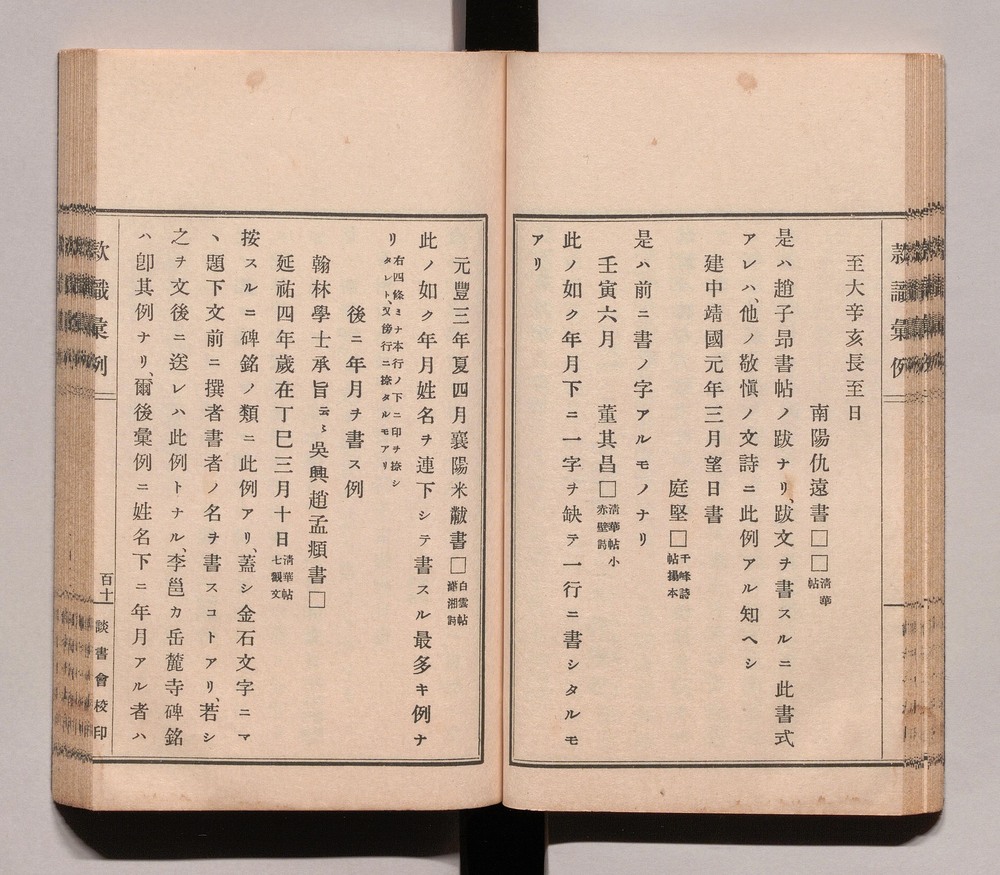 款識彙例
至大辛亥長至日
南陽仇遠書□□清華帖
是ハ趙子昂書帖ノ跋ナリ、跋文ヲ書スルニ此書式
アレハ、他ノ敬愼ノ文詩ニ此例アル知ヘシ
建中靖國元年三月望日書
庭堅□千峰詩帖搨本
是ハ前ニ書ノ字アルモノナリ
壬寅六月　董其昌□清華帖小赤壁詞
此ノ如ク年月下ニ一字ヲ缺テ一行ニ書シタルモ
アリ
元豐三年夏四月襄陽米黻書□白雲帖瀟湘詞
此ノ如ク年月姓名ヲ連下シテ書スル最多キ例ナ
リ右四條ミナ本行ノ下ニ印ヲ捺シタレト、又傍行ニ捺タルモアリ
後ニ年月ヲ書ス例
翰林學士承旨云〻吳興趙孟頫書□
延祐四年歲在丁巳三月十日清華帖七觀文
按スルニ碑銘ノ類ニ此例アリ、蓋シ金石文字ニマ
ヽ題下文前ニ撰者書者ノ名ヲ書スコトアリ、若シ
之ヲ文後ニ送レハ此例トナル、李邕カ岳麓寺碑銘
ハ卽其例ナリ、爾後彙例ニ姓名下ニ年月アル者ハ
款識彙例
百十
談書會校印